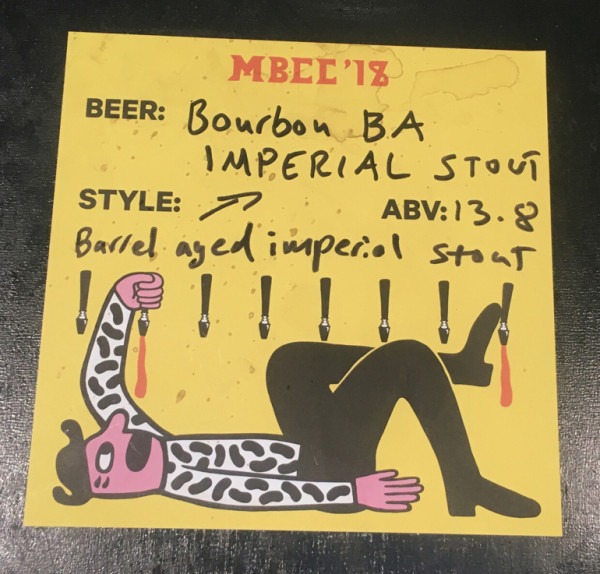 MBCC'18
BEER: Bourbon BA
IMPERIAL STOUT
STYLE: ABV: 13.8
Barrel aged imperial stout